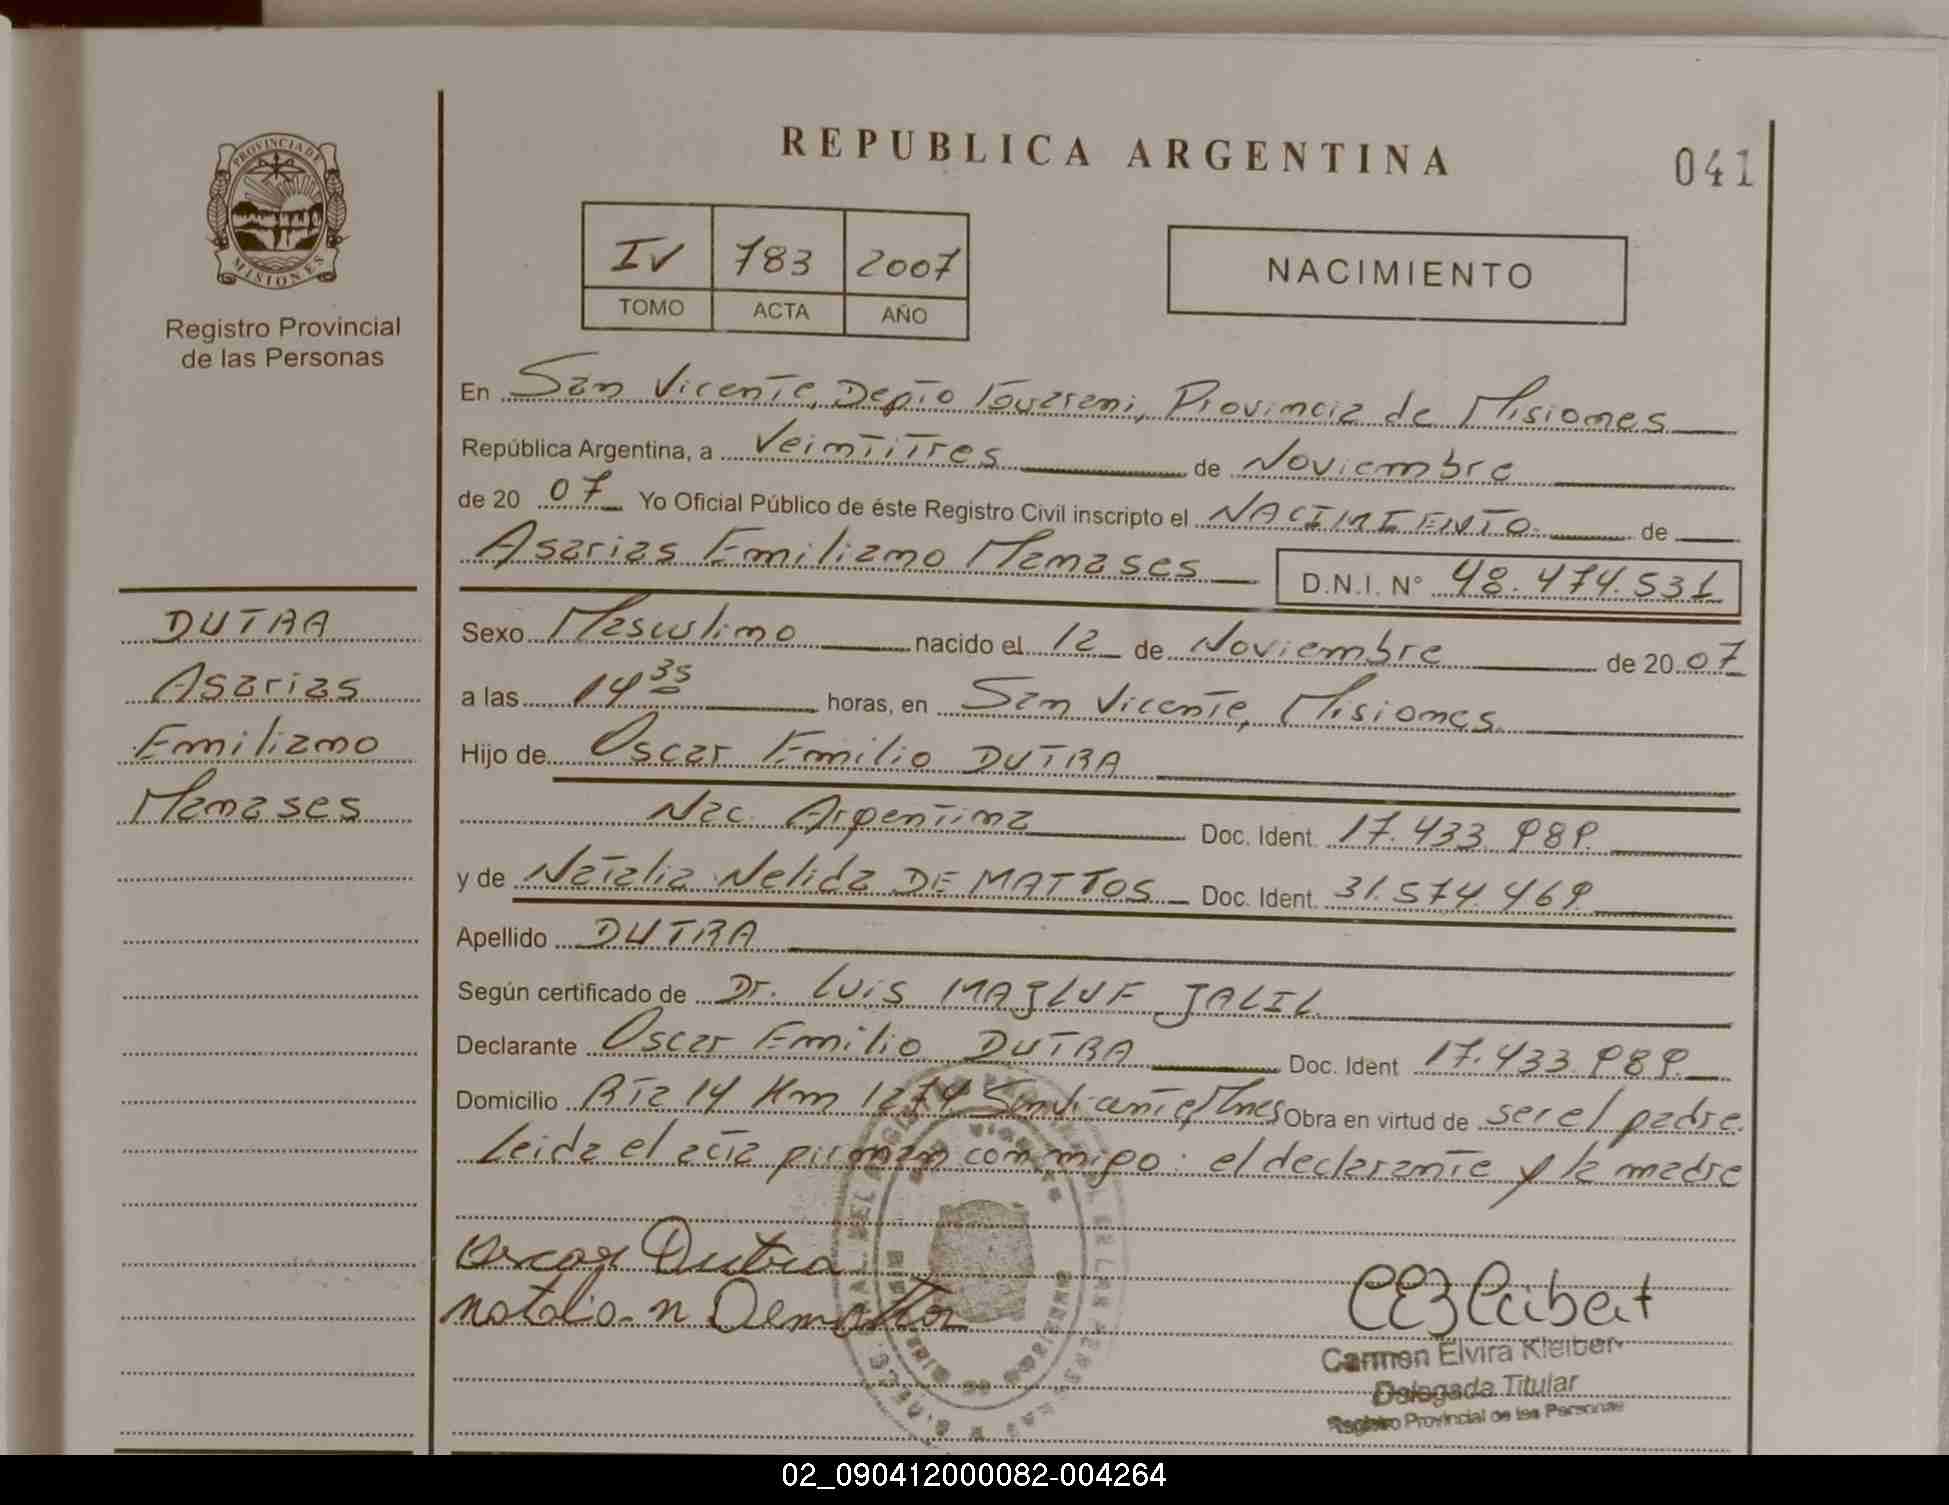 REPUBLICA ARGENTINA
041
PROVINCIA DE
MISIONES
Registro Provincial
de las Personas
IV 783 2007
TOMO ACTA AÑO
NACIMIENTO
En San Vicente, Depto Guarani, Provincia de Misiones
República Argentina, a Veintitres de Noviembre
de 20 07 Yo Oficial Público de éste Registro Civil inscripto el NACIMIENTO de
Asarias Emiliano Manases D.N.I. N° 48.474.531
DUTRA
Asarias
Emiliano
Manases
Sexo Masculino nacido el 12 de Noviembre de 20 07
a las 14 35 horas, en San Vicente, Misiones
Hijo de Oscar Emilio DUTRA
Nac. Argentina Doc. Ident. 17.433.989.
y de Natalia Nelida DE MATTOS Doc. Ident. 31.574.469.
Apellido DUTRA
Según certificado de Dr. Luis MAJLUF JALIL
Declarante Oscar Emilio DUTRA Doc. Ident 17.433.989.
Domicilio Rta 14 Km 1274 San Vicente, Mnes Obra en virtud de ser el padre.
Leida el acta firman conmigo: el declarante y la madre
Oscar Dutra
Natalia n Demattos
Carmen Elvira Kleiber
Delegada Titular
Registro Provincial de las Personas
02_090412000082-004264